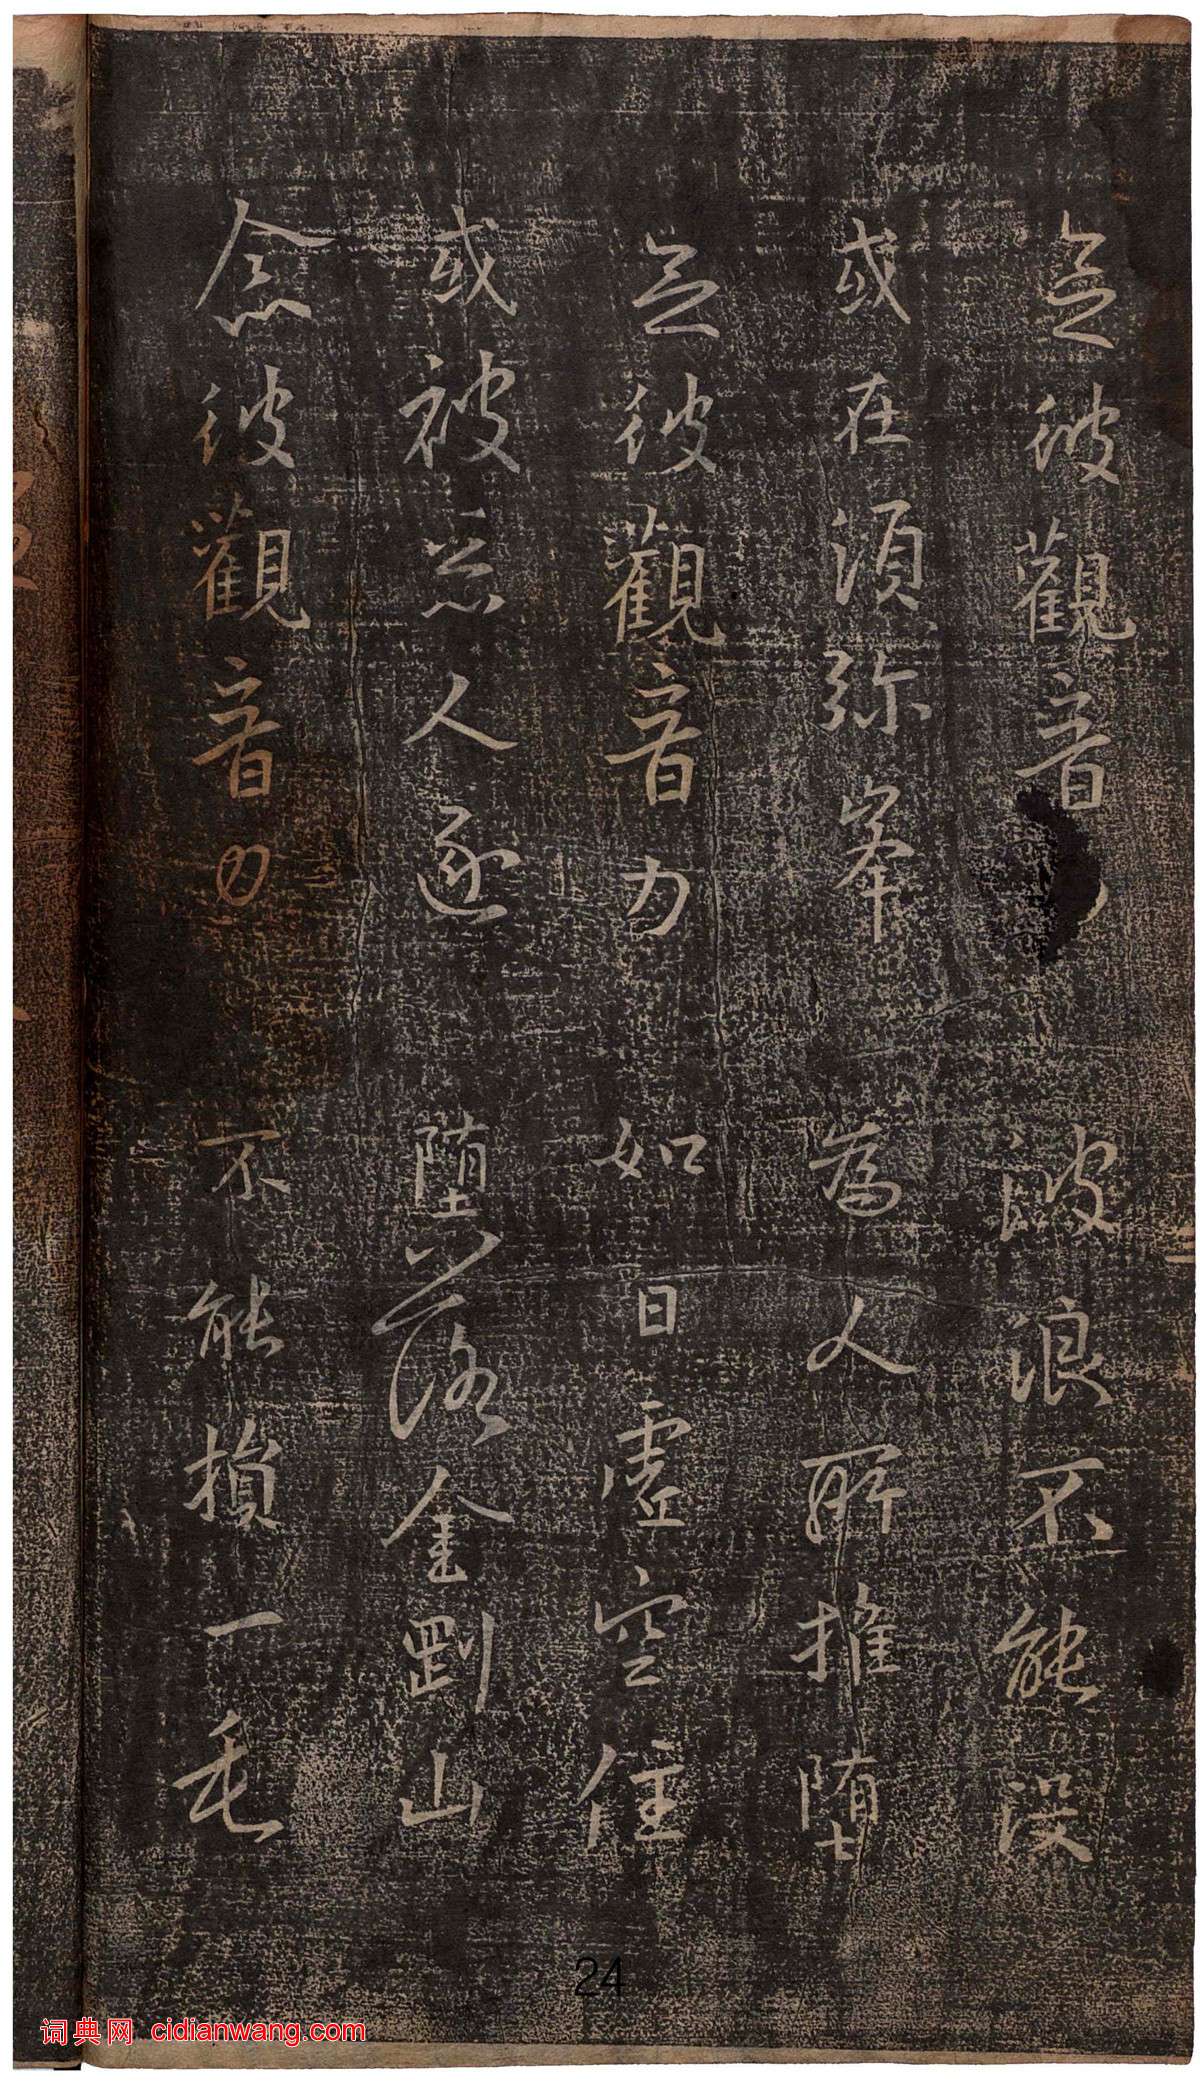 念彼觀音 波浪不能沒
或在須弥峯 為人所推堕
念彼觀音力 如日虛空住
或被惡人逐 堕落金剛山
念彼觀音力 不能損一毛
24
词典网 cidianwang.com